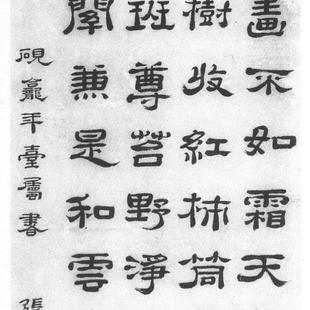 畫不如霜天
樹收紅柹筒
班尊苔野淨
兼是和雲
硯龕年臺屬書
張